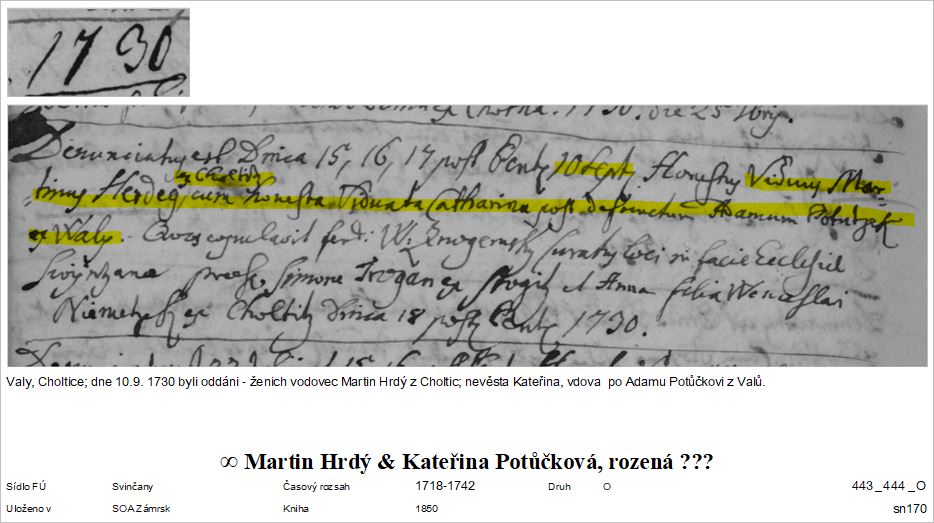 1730
Denunciaty est Dnica 15, 16, 17 post Pent, 10 Sept, Honesty Viduus Mar-
ex Choltitz
tinus Herdeg, cum honesta Viduata Catharina post defunctum Adamum Potužek
ex Waly. Quos copulavit ferd. W. curaty loci in facie Ecclesiae
Swynczana Simone ex et Anna filia Wenceslai
Niemetz ex Choltitz Dnica 18 post Pent, 1730.
Valy, Choltice; dne 10.9. 1730 byli oddáni - ženich vodovec Martin Hrdý z Choltic; nevěsta Kateřina, vdova po Adamu Potůčkovi z Valů.
∞ Martin Hrdý & Kateřina Potůčková, rozená ???
Sídlo FÚ Svinčany Časový rozsah 1718-1742 Druh O 443_444_O
Uloženo v SOA Zámrsk Kniha 1850 sn170